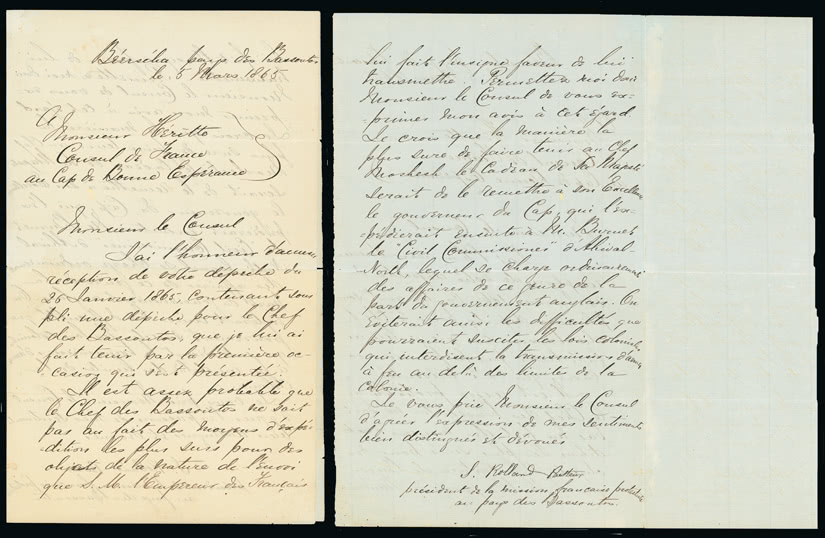 Béerséba pays des Bassoutos
le 5 Mars 1865
A
Monsieur Héritte
Consul de France
au Cap de Bonne Espérance
Monsieur le Consul
J'ai l'honneur d'accuser
réception de votre dépêche du
26 Janvier 1865, contenant sous
pli une dépêche pour le Chef
des Bassoutos, que je lui ai
fait tenir par la première oc-
casion qui s'est présentée.
Il est assez probable que
le Chef des Bassoutos ne soit
pas au fait des moyens d'expé-
dition les plus surs pour des
objets de la nature de l'Envoi
que S. M. l'Empereur des Français
lui fait l'insigne faveur de lui
transmettre. Permettez moi donc
Monsieur le Consul de vous ex-
-primer mon avis à cet égard.
Je crois que la manière la
plus sure de faire tenir au Chef
Moshesh le Cadeau de Sa Majesté
serait de le remettre à son Excellence
le gouverneur du Cap, qui l'ex-
-pédierait ensuite à M. Burnet
le "Civil Commissioner" d'Aliwal-
North, lequel se charge ordinairement
des affaires de ce genre de la
part du gouvernement anglais. On
éviterait ainsi les difficultés que
pourraient susciter les lois coloniales
qui interdisent la transmission d'armes
à feu au delà des limites de la
Colonie.
Je vous prie Monsieur le Consul
d'agréer l'expression de mes sentiments
bien distingués et dévoués
S. Rolland
président de la mission française protestante
au pays des Bassoutos.